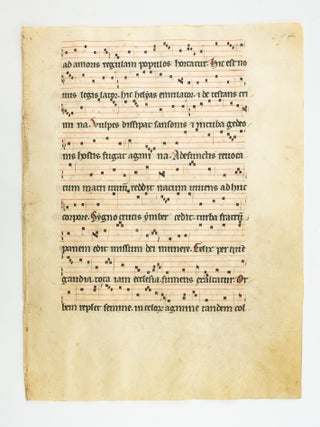 ad amoris regulam populos hortatur. Hic est no
uus legis lator. hic helyas emulator. & detestans cri
mina. Vulpes dissipat sansonis & in tuba gedeo
nis hostis fugat agmina. A defunctis reuoca
tum matri unum reddit natum uiuens adhuc
corpore. Sygno crucis ymber cedit. turba
panem edit missum dei munere. Felix per quem
gaudia. tota iam ecclesia. sumens exaltatur. Or
bem replet semine. in celorum agmine tandem col